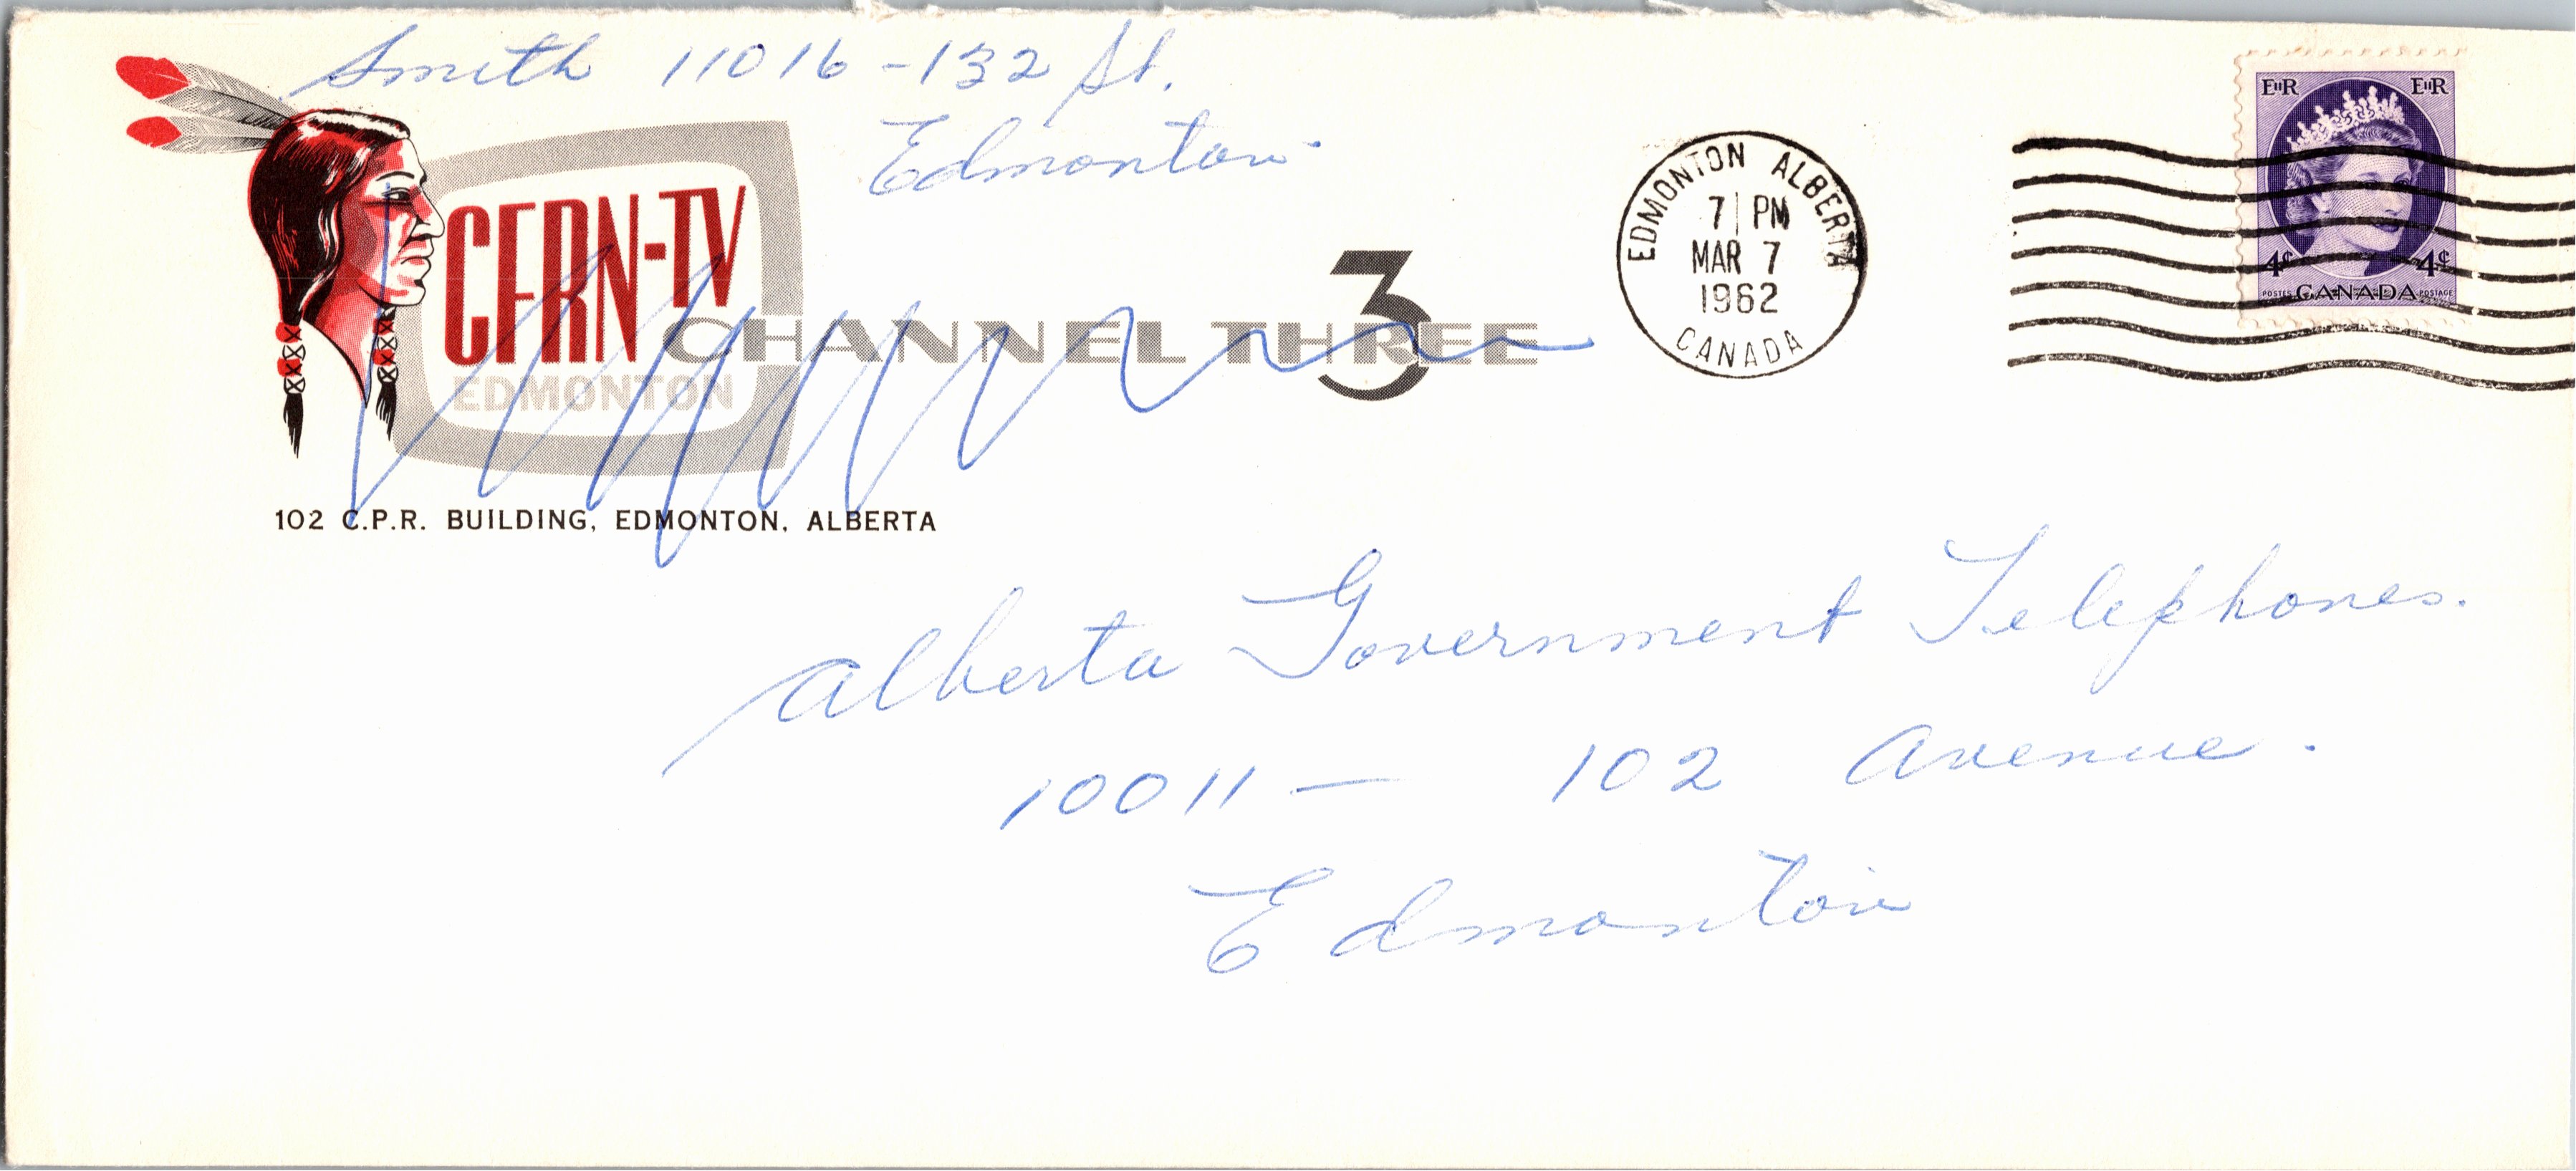 Smith 11016 - 132 St.
Edmonton
CFRN-TV
CHANNEL THREE
3
EDMONTON
102 C.P.R. BUILDING, EDMONTON, ALBERTA
EDMONTON ALBERTA
7 PM
MAR 7
1962
CANADA
EIIR EIIR
4¢ 4¢
POSTES CANADA POSTAGE
Alberta Government Telephones.
10011 — 102 Avenue.
Edmonton